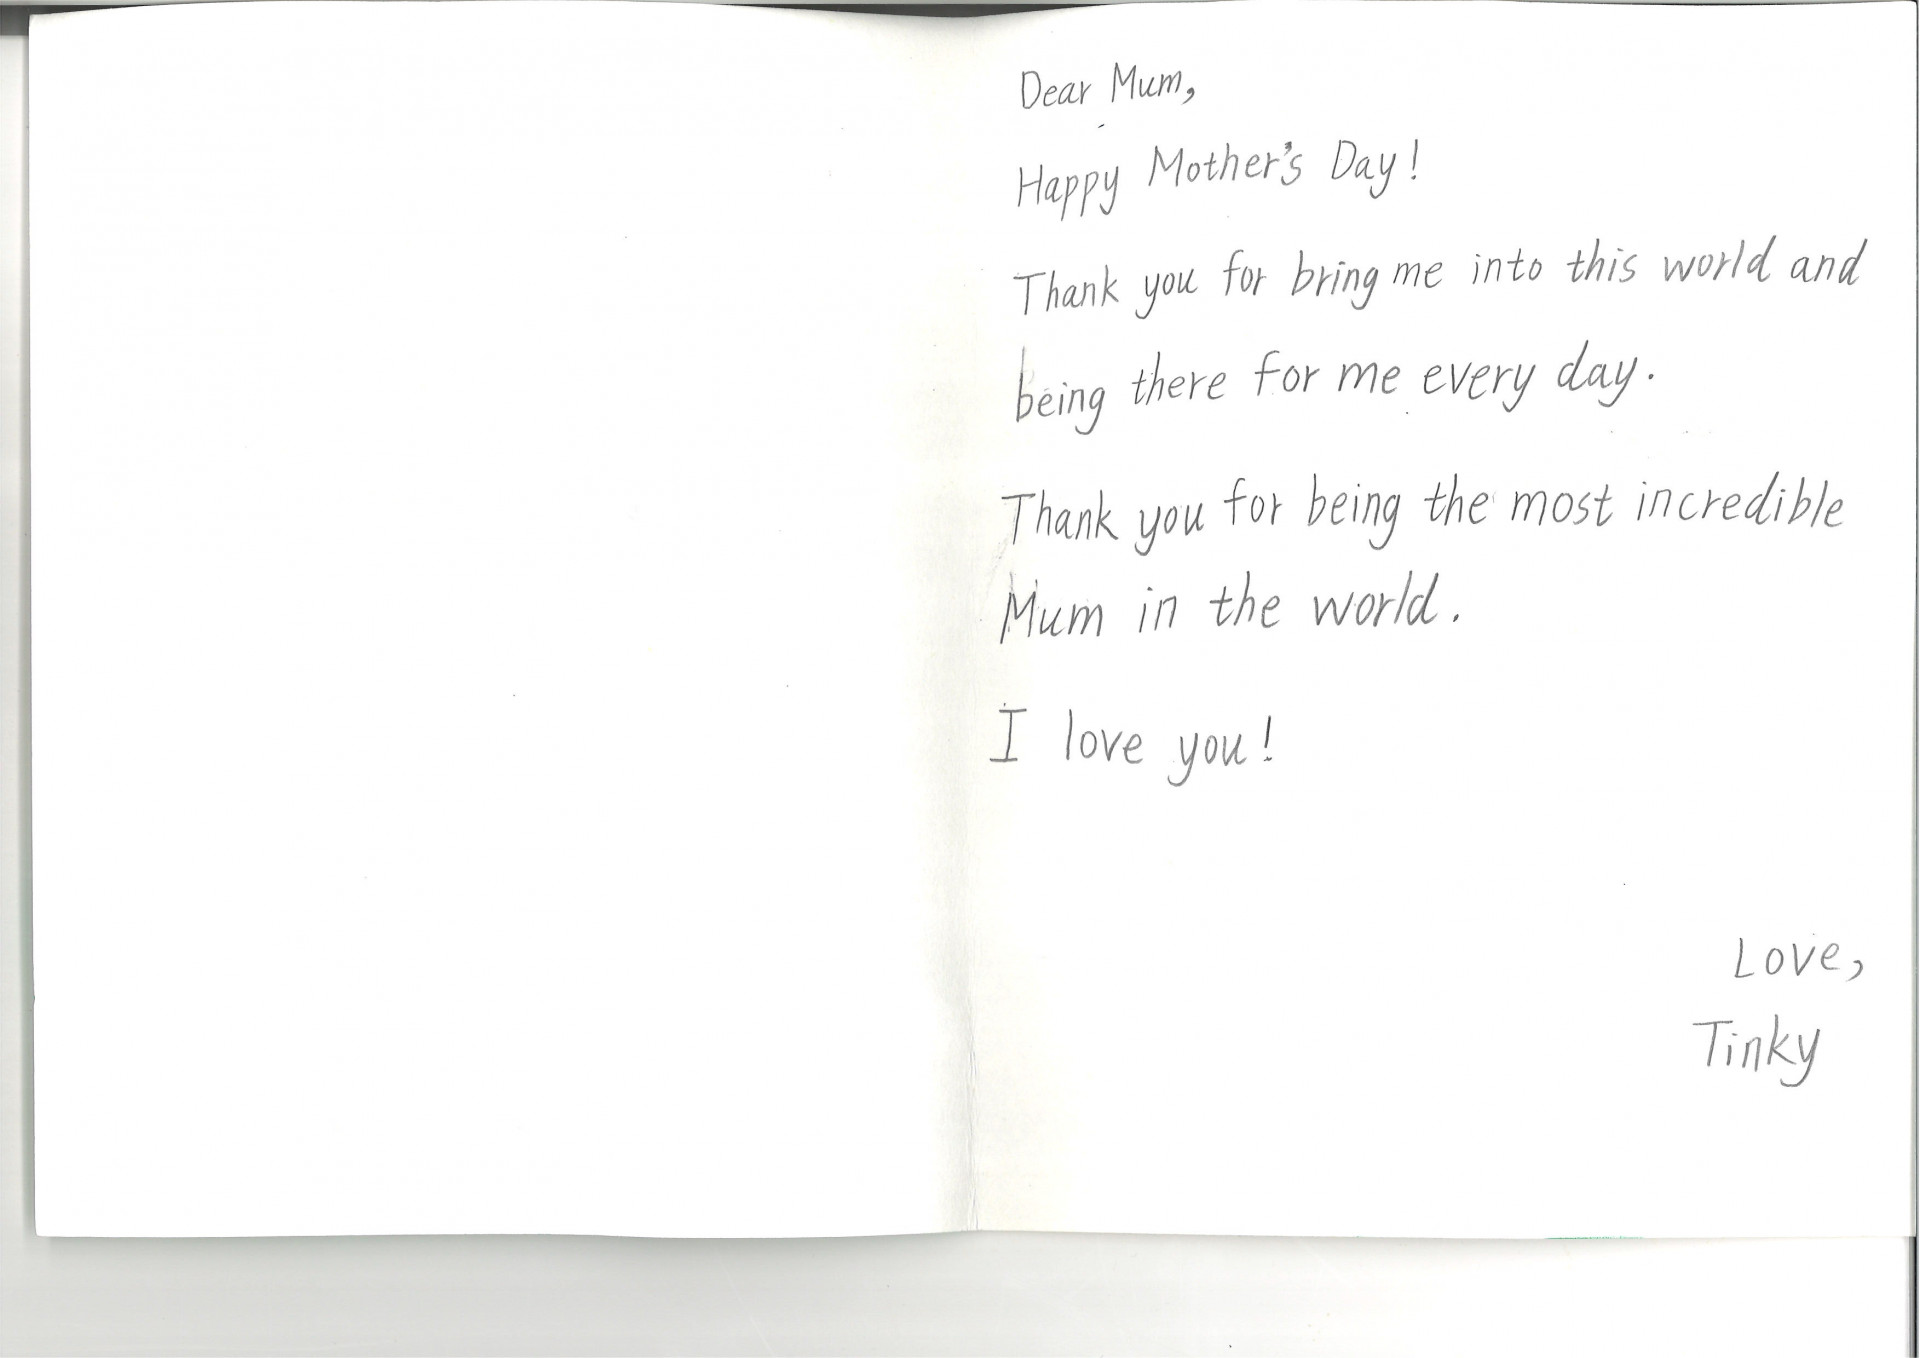 Dear Mum,
Happy Mother's Day!
Thank you for bring me into this world and
being there for me every day.
Thank you for being the most incredible
Mum in the world.
I love you!
Love,
Tinky